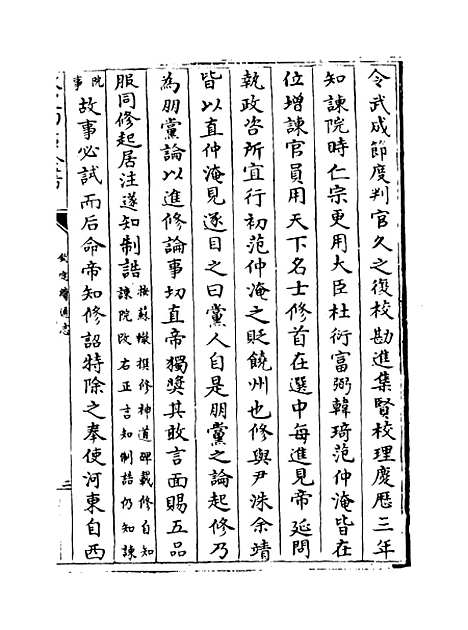 令武成節度判官久之復校勘進集賢校理慶厯三年
知諫院時仁宗更用大臣杜衍富弼韓琦范仲淹皆在
位增諫官員用天下名士修首在選中每進見帝延問
執政咨所宜行初范仲淹之貶饒州也修與尹洙余靖
皆以直仲淹見逐目之曰黨人自是朋黨之論起修乃
為朋黨論以進修論事切直帝獨奬其敢言面賜五品
服同修起居注遂知制誥按蘇轍撰修神道碑載修自知
諫院改右正言知制誥仍知諫
院事故事必試而后命帝知修詔特除之奉使河東自西
欽定續通志